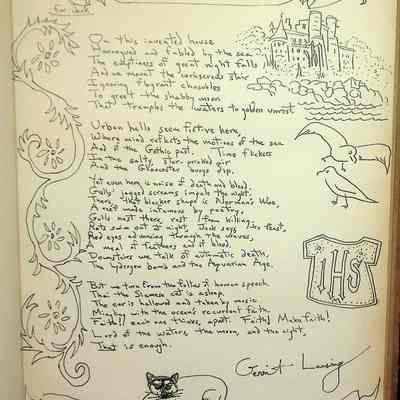 For Jack
On this invented house
and fabled by the sea
The emptiness of great night falls
And we mount the corkscrewed stair
Ignoring flagrant chasubles
To greet the shabby moon
That tramples the waters to golden unrest
Urban hells seem fictive here,
Where mind reflects the motions of the sea
And if the Gothic past, Time flickers
In the salty, star-prickled air
And the Gloucester buoys dip.
Yet even here is noise of death and blood.
Gulls' jagged screams impale the night.
There, that blacker shape is Norman's Woe,
A reef made infamous by poetry,
Gulls nest there, rest from killing.
Rats swim out at night, Jack says, to feast,
Red eyes advancing through the waves,
A of feathers and of blood.
Downstairs we talk of automatic death,
The hydrogen bomb and the Aquarian Age.
But we turn from the follies of human speech
The Siamese cat is asleep
The ear is hallowed and taken by music
Mingling with the ocean's recurrent faith,
Faith! each one thinks, apart. Faith! Make faith!
Lord of the waters, the moon, and the night,
That is enough.
Gerrit Lansing
IHS